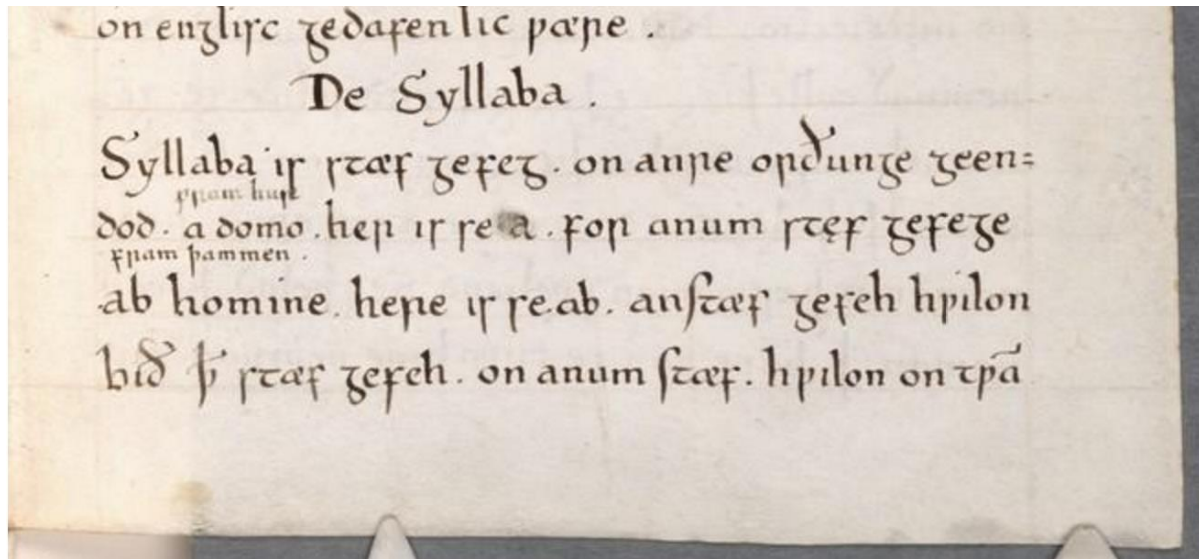 on englisc gedafenlic wære .
De Syllaba .
Syllaba is stæf gefeg . on anre orðunge geen=
fram huse
dod . a domo . her is se a . for anum stęf gefege
fram þammen .
ab homine . here is se . ab . anstæf gefeh hwilon
bið ꝥ stæf gefeh . on anum stæf . hwilon on twā